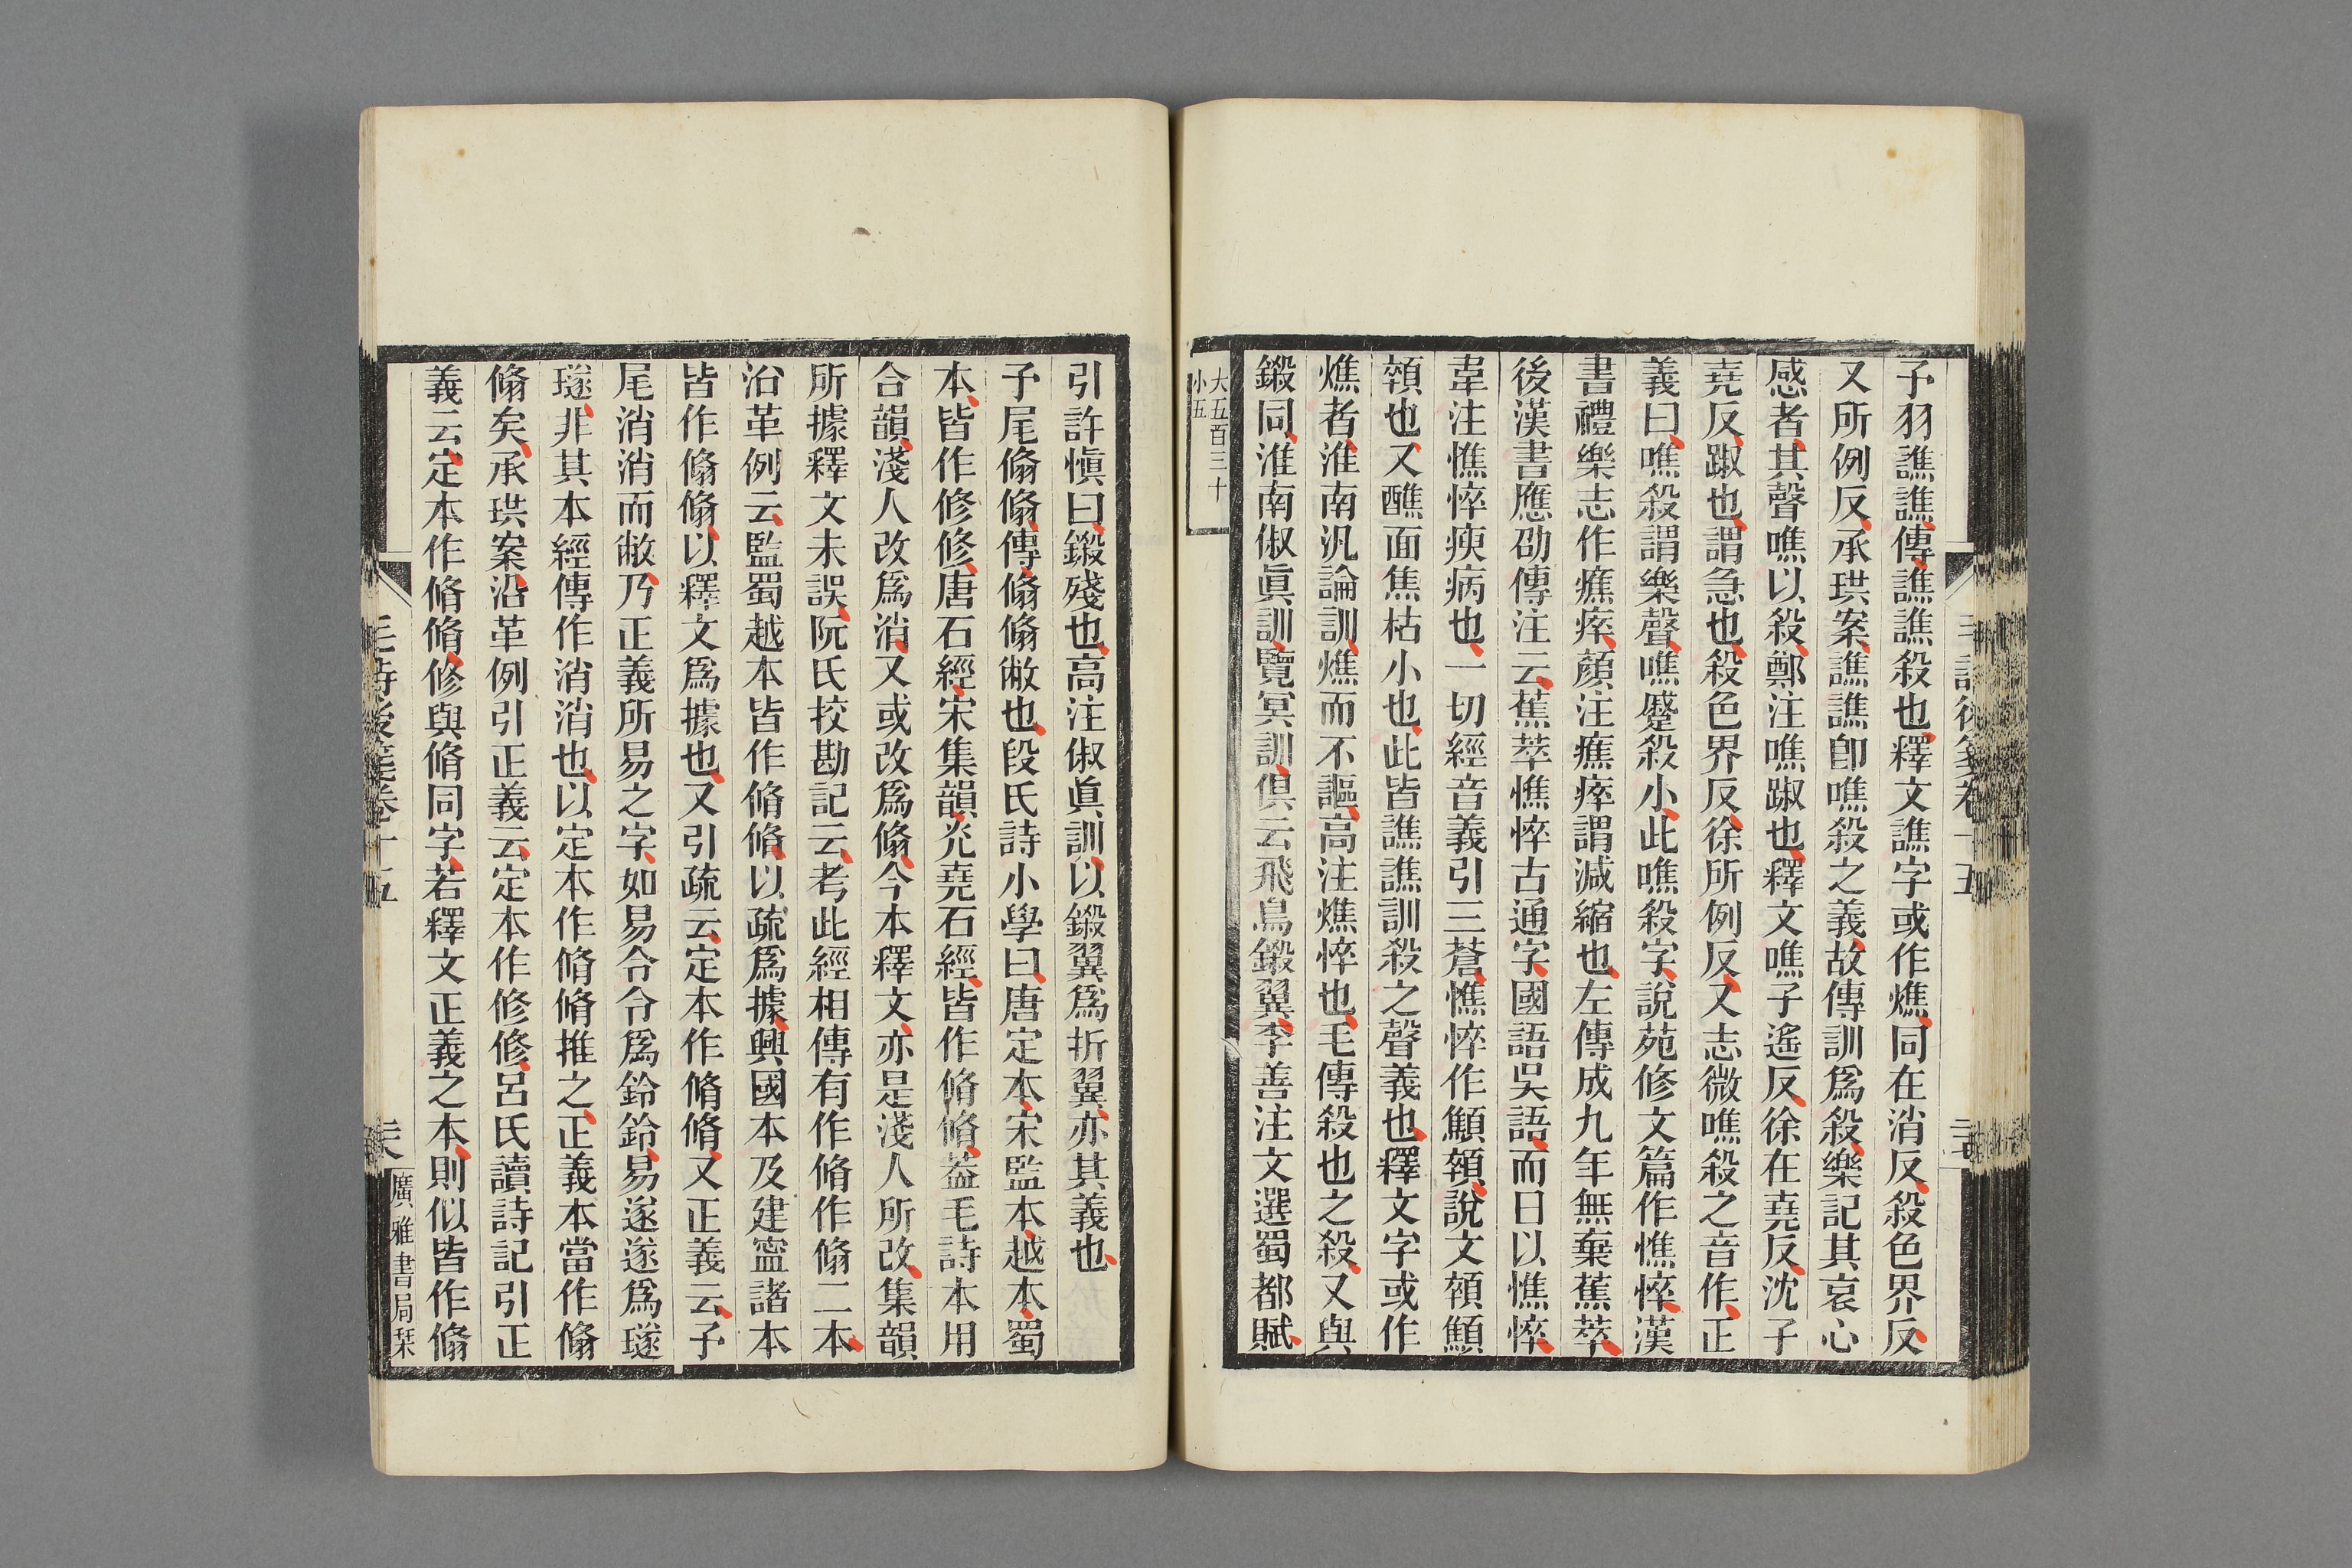 予羽譙譙傳譙譙殺也釋文譙字或作燋同在消反殺色界反
又所例反承珙案譙譙卽噍殺之義故傳訓爲殺樂記其哀心
感者其聲噍以殺鄭注噍踧也釋文噍子遙反徐在堯反沈子
堯反踧也謂急也殺色界反徐所例反又志微噍殺之音作正
義曰噍殺謂樂聲噍蹙殺小此噍殺字說苑修文篇作憔悴漢
書禮樂志作癄瘁顏注癄瘁謂減縮也左傳成九年無棄蕉萃
後漢書應劭傳注云蕉萃憔悴古通字國語吳語而日以憔悴
韋注憔悴瘐病也一切經音義引三蒼憔悴作顦顇說文顇顦
顇也又醮面焦枯小也此皆譙譙訓殺之聲義也釋文字或作
燋者淮南汎論訓燋而不謳高注燋悴也毛傳殺也之殺又與
鎩同淮南俶眞訓覽冥訓俱云飛鳥鎩翼李善注文選蜀都賦
大五百三十
小五
毛詩後箋卷十五
引許愼曰鎩殘也高注俶眞訓以鎩翼爲折翼亦其義也
予尾翛翛傳翛翛敝也段氏詩小學曰唐定本宋監本越本蜀
本皆作修修唐石經宋集韻光堯石經皆作脩脩葢毛詩本用
合韻淺人改爲消又或改爲翛今本釋文亦是淺人所改集韻
所據釋文未誤阮氏挍勘記云考此經相傳有作脩作翛二本
沿革例云監蜀越本皆作脩脩以疏爲據興國本及建寧諸本
皆作翛翛以釋文爲據也又引疏云定本作脩脩又正義云予
尾消消而敝乃正義所易之字如易令令爲鈴鈴易遂遂爲璲
璲非其本經傳作消消也以定本作脩脩推之正義本當作翛
翛矣承珙案沿革例引正義云定本作修修呂氏讀詩記引正
義云定本作脩脩修與脩同字若釋文正義之本則似皆作翛
毛詩後箋卷十五
廣雅書局栞